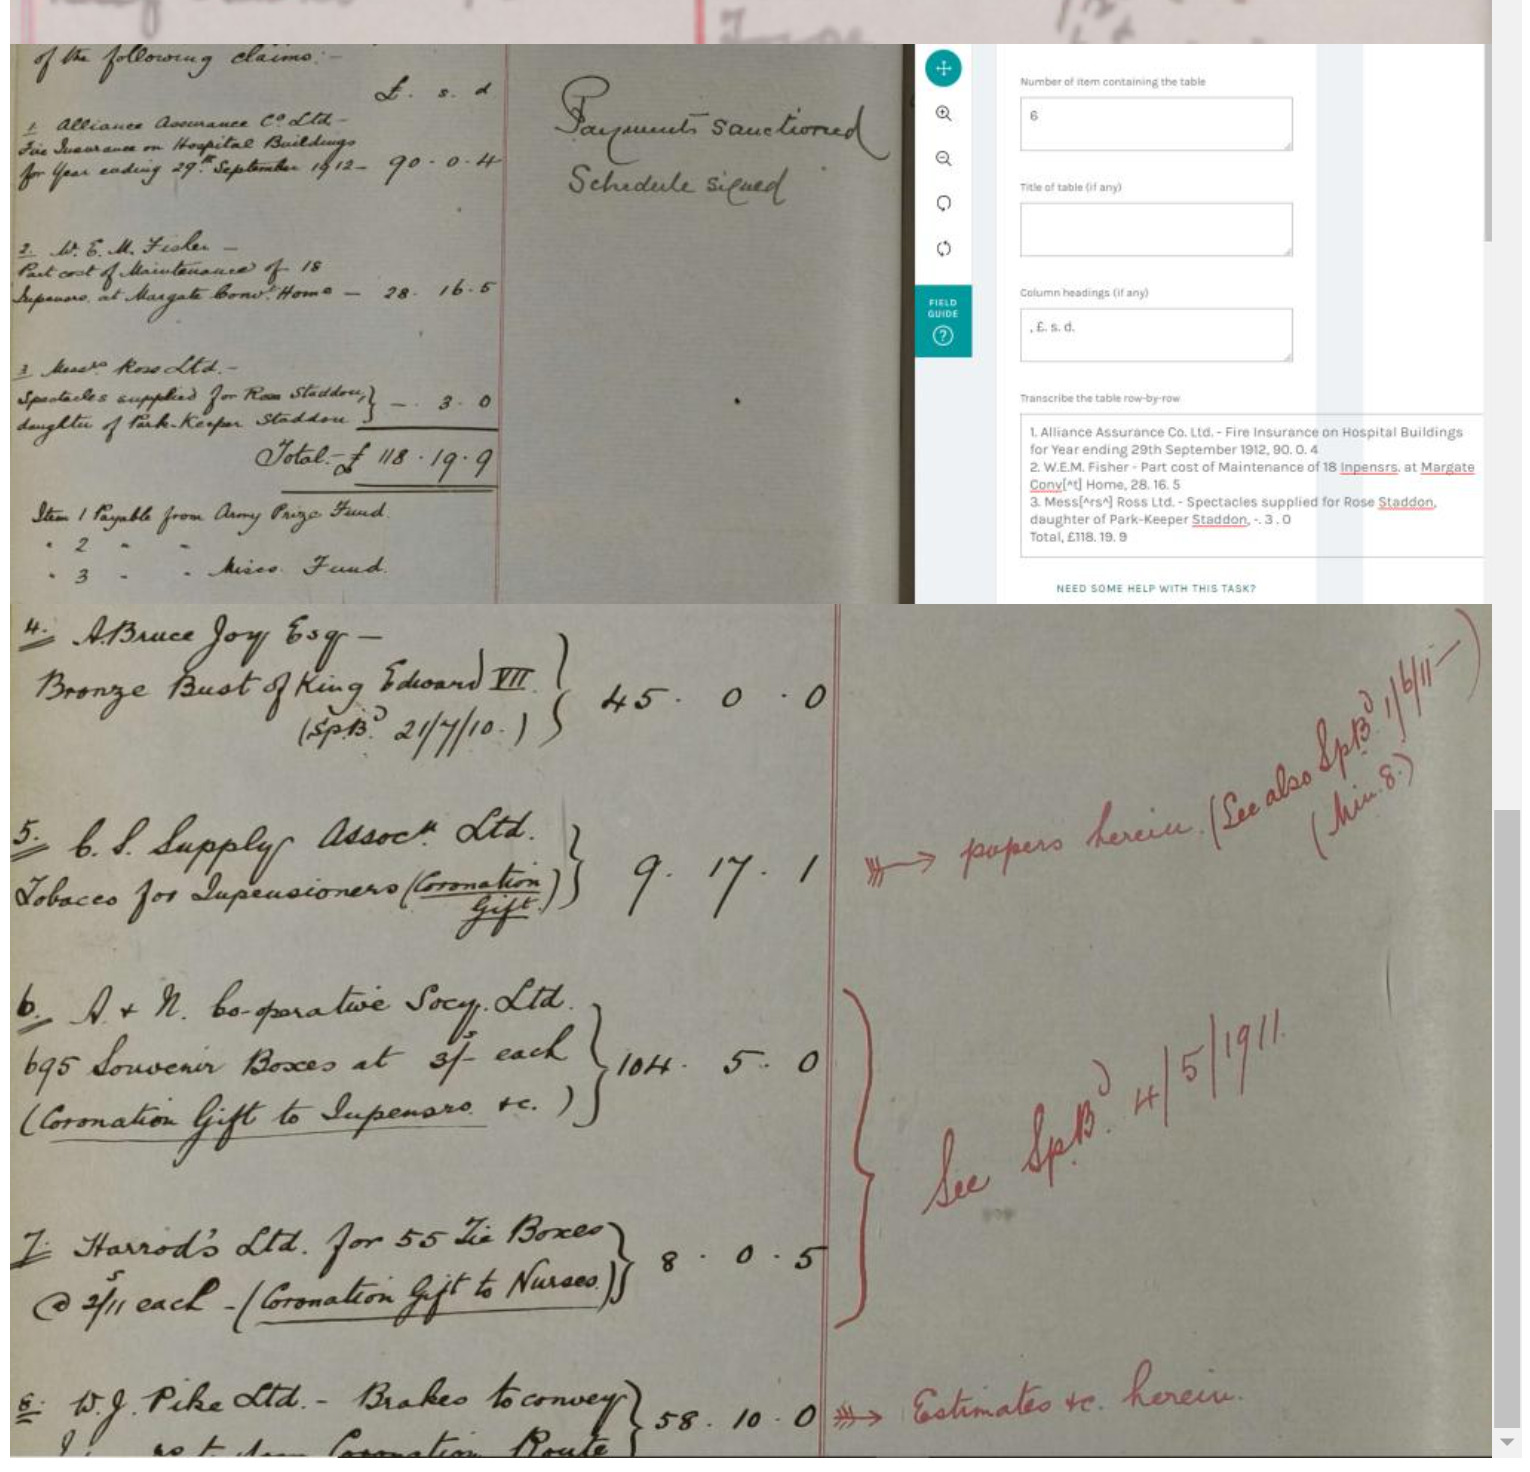 of the following claims:-
£. s. d
1. Alliance Assurance Co Ltd-
Fire Insurance on Hospital Buildings
for Year ending 29th September 1912- 90-0-4
Payments sanctioned
Schedule signed
2. W. E. M. Fisher -
Part cost of Maintenance of 18
Inpensrs. at Margate Convt Home - 28. 16.5
3 Messrs Ross Ltd.-
Spectacles supplied for Rose Staddon,
daughter of Park-Keeper Staddon } -. 3. 0
Total:- £ 118.19.9
Item 1 Payable from Army Prize Fund.
" 2 " "
" 3 " " Misco. Fund.
Number of item containing the table
6
Title of table (if any)
Column headings (if any)
, £. s. d.
FIELD
GUIDE
Transcribe the table row-by-row
1. Alliance Assurance Co. Ltd. - Fire Insurance on Hospital Buildings
for Year ending 29th September 1912, 90. 0. 4
2. W.E.M. Fisher - Part cost of Maintenance of 18 Inpensrs. at Margate
Conv[^t] Home, 28. 16. 5
3. Mess[^rs^] Ross Ltd. - Spectacles supplied for Rose Staddon,
daughter of Park-Keeper Staddon, -. 3 . 0
Total, £118. 19. 9
NEED SOME HELP WITH THIS TASK?
4. A. Bruce Joy Esq -
Bronze Bust of King Edward VII
(Sp.Bd 21/7/10.) } 45. 0 . 0
5. C. S. Supply Assocn. Ltd.
Tobacco for Inpensioners (Coronation
Gift.) } 9. 17. 1
papers herein. (See also SpBd. 1/6/11-)
(Min. 8.)
6. A + N. Co-operative Socy. Ltd.
695 Souvenir Boxes at 3/- each
(Coronation Gift to Inpensrs. &c.) } 104. 5. 0
See Sp.Bd. 4/5/1911.
7. Harrod's Ltd. for 55 Tie Boxes
@ 2/11 each - (Coronation Gift to Nurses.) } 8 . 0 . 5
8. W.J. Pike Ltd. - Brakes to convey
Coronation Route } 58. 10. 0
Estimates &c. herein.